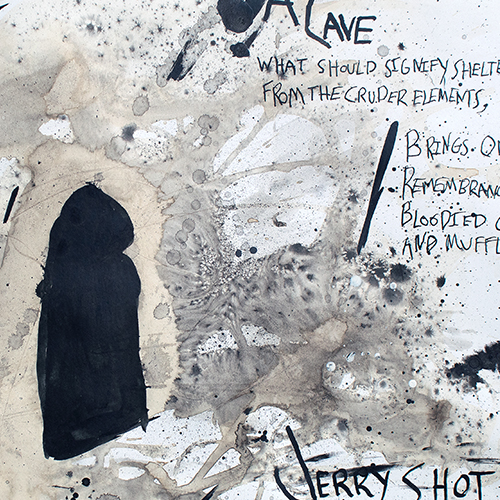 A CAVE
WHAT SHOULD SIGNIFY SHELTE
FROM THE CRUDER ELEMENTS,
BRINGS. QU
REMEMBRANC
BLOODIED
AND MUFFL
JERRY SHOT